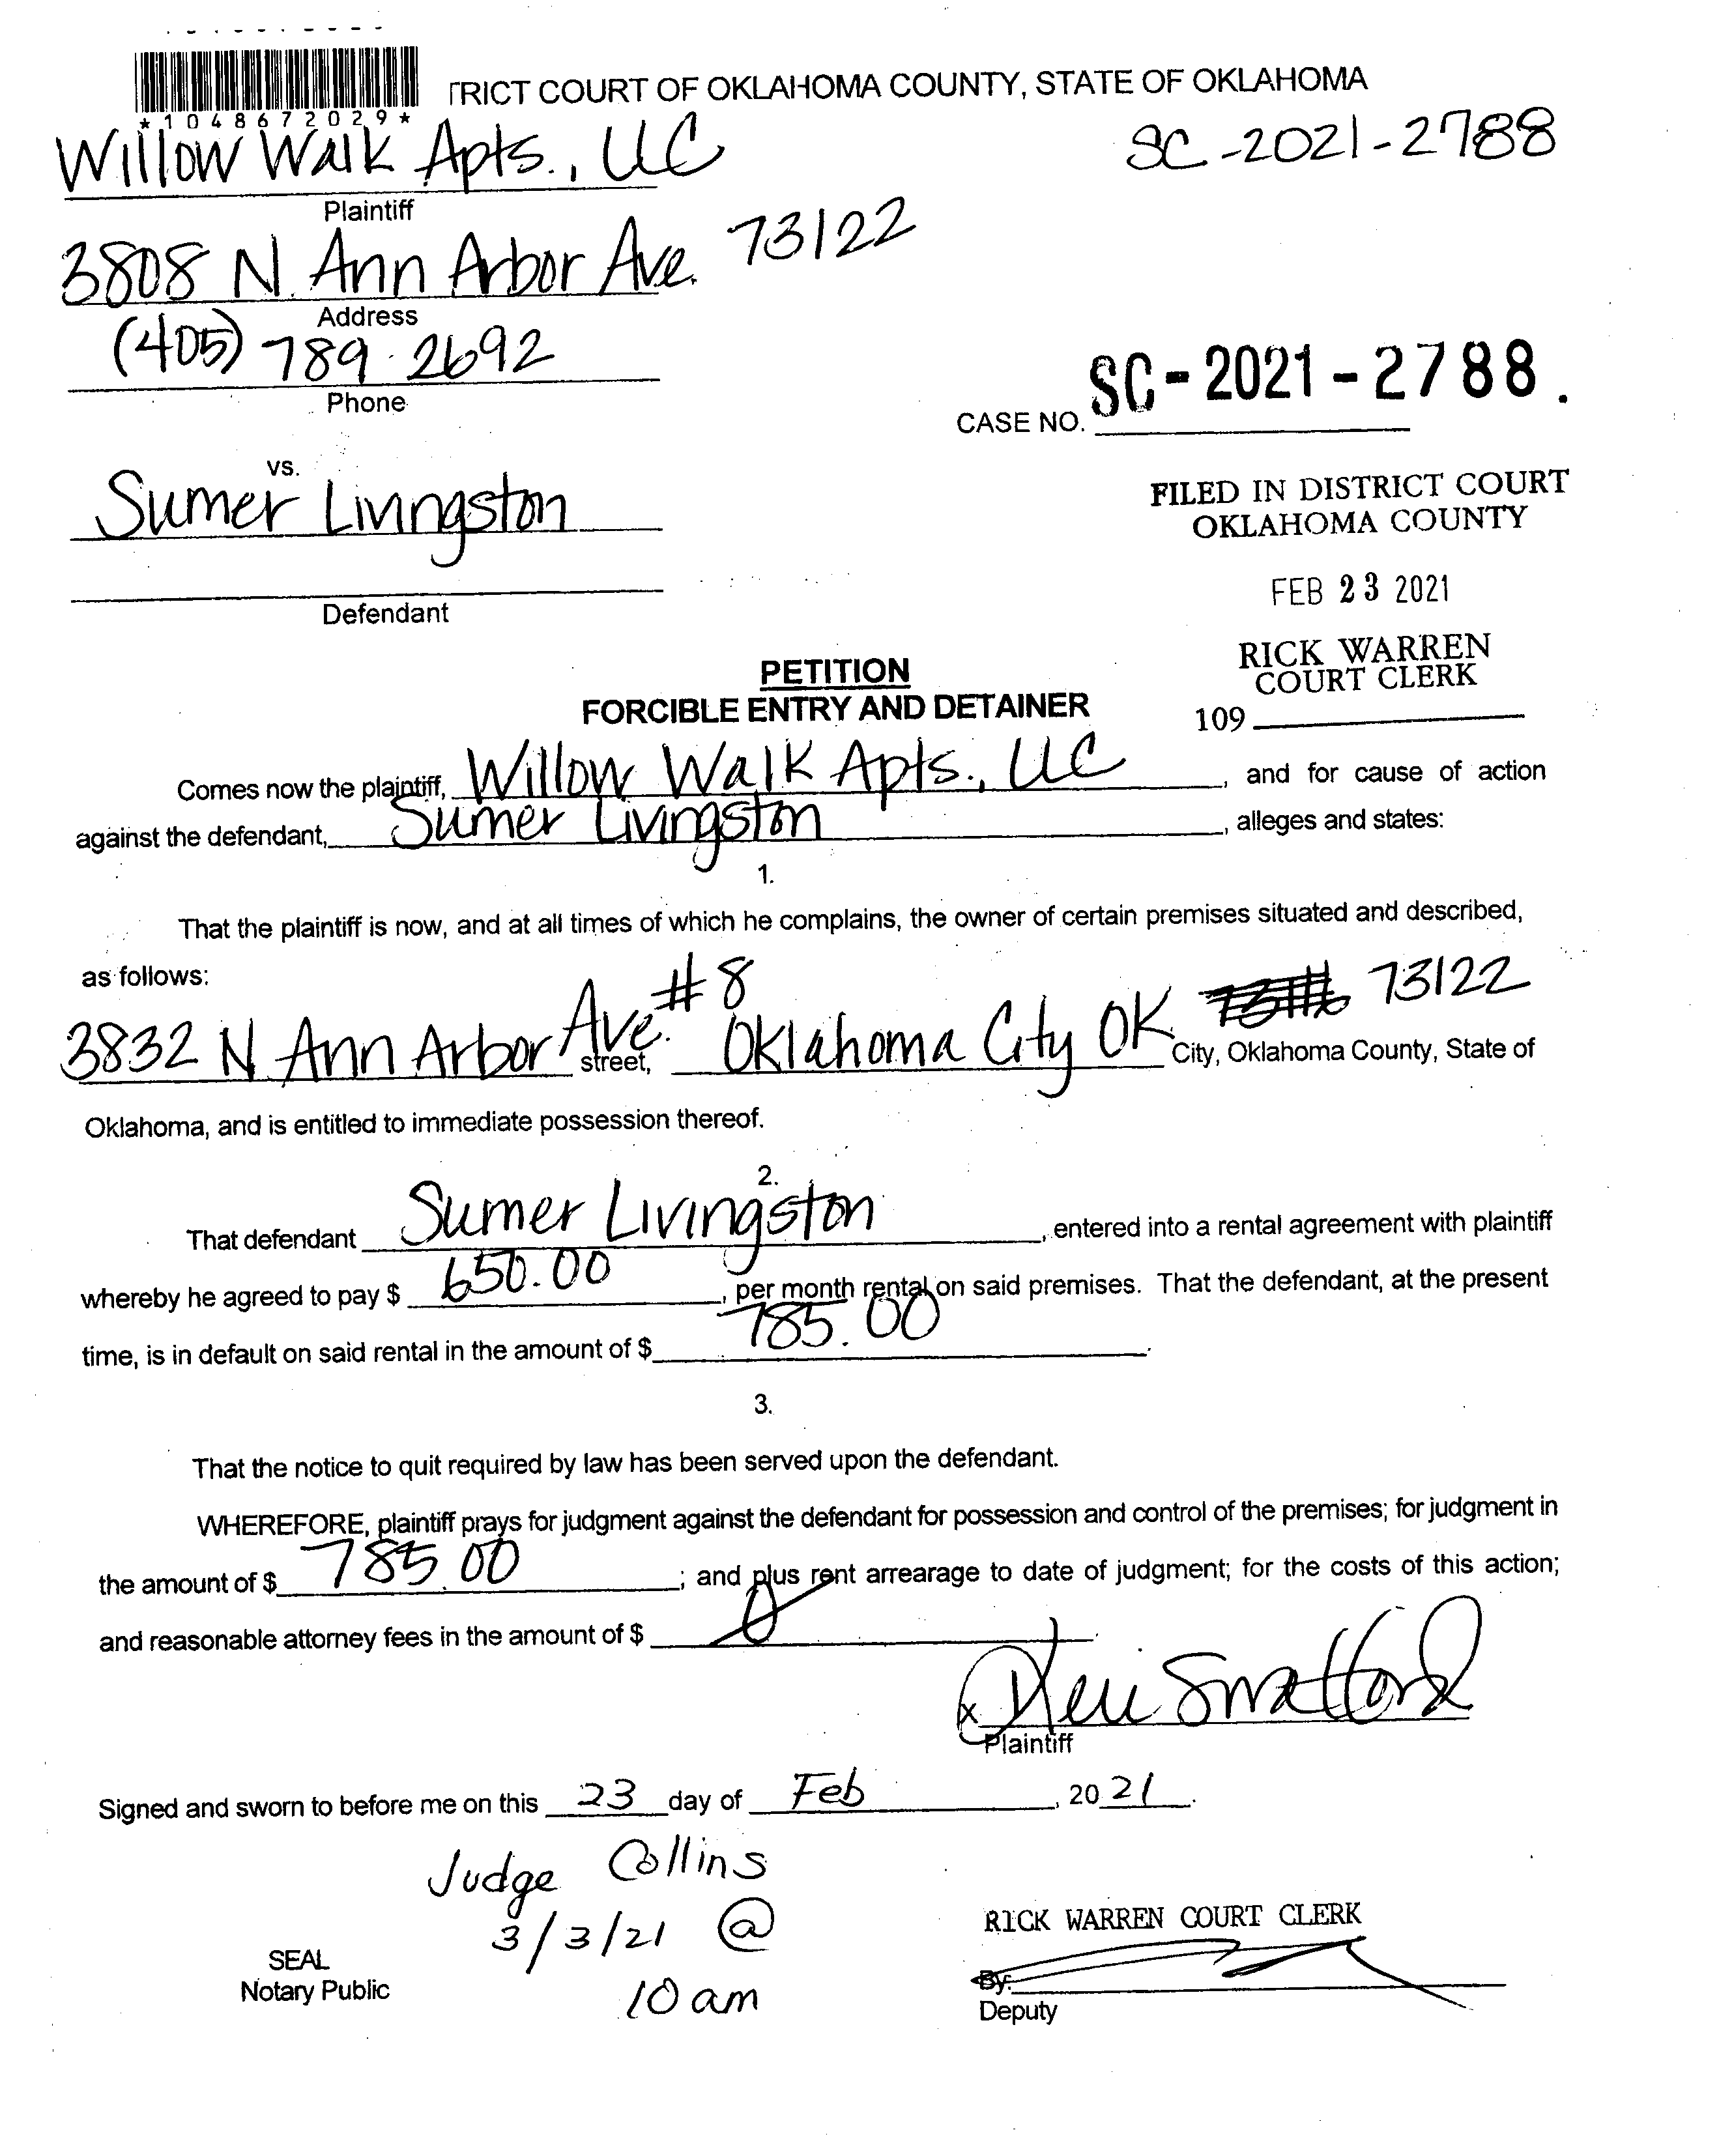 *1048672029*
TRICT COURT OF OKLAHOMA COUNTY, STATE OF OKLAHOMA
Willow Walk Apts., LLC
SC-2021-2788
Plaintiff
3808 N. Ann Arbor Ave. 73122
Address
(405) 789-2692
Phone
CASE NO. SC-2021-2788.
vs.
Sumer Livingston
Defendant
FILED IN DISTRICT COURT
OKLAHOMA COUNTY
FEB 23 2021
RICK WARREN
COURT CLERK
109
PETITION
FORCIBLE ENTRY AND DETAINER
Comes now the plaintiff, Willow Walk Apts., LLC, and for cause of action
against the defendant, Sumer Livingston, alleges and states:
1.
That the plaintiff is now, and at all times of which he complains, the owner of certain premises situated and described,
as follows:
3832 N Ann Arbor Ave. #8 street, Oklahoma City OK 73122 City, Oklahoma County, State of
Oklahoma, and is entitled to immediate possession thereof.
2.
That defendant Sumer Livingston, entered into a rental agreement with plaintiff
whereby he agreed to pay $ 650.00, per month rental on said premises. That the defendant, at the present
time, is in default on said rental in the amount of $ 785.00.
3.
That the notice to quit required by law has been served upon the defendant.
WHEREFORE, plaintiff prays for judgment against the defendant for possession and control of the premises; for judgment in
the amount of $ 785.00; and plus rent arrearage to date of judgment; for the costs of this action;
and reasonable attorney fees in the amount of $ 0.
x
Plaintiff
Signed and sworn to before me on this 23 day of Feb, 2021.
Judge Collins
3/3/21 @
10 am
SEAL
Notary Public
RICK WARREN COURT CLERK
By:
Deputy